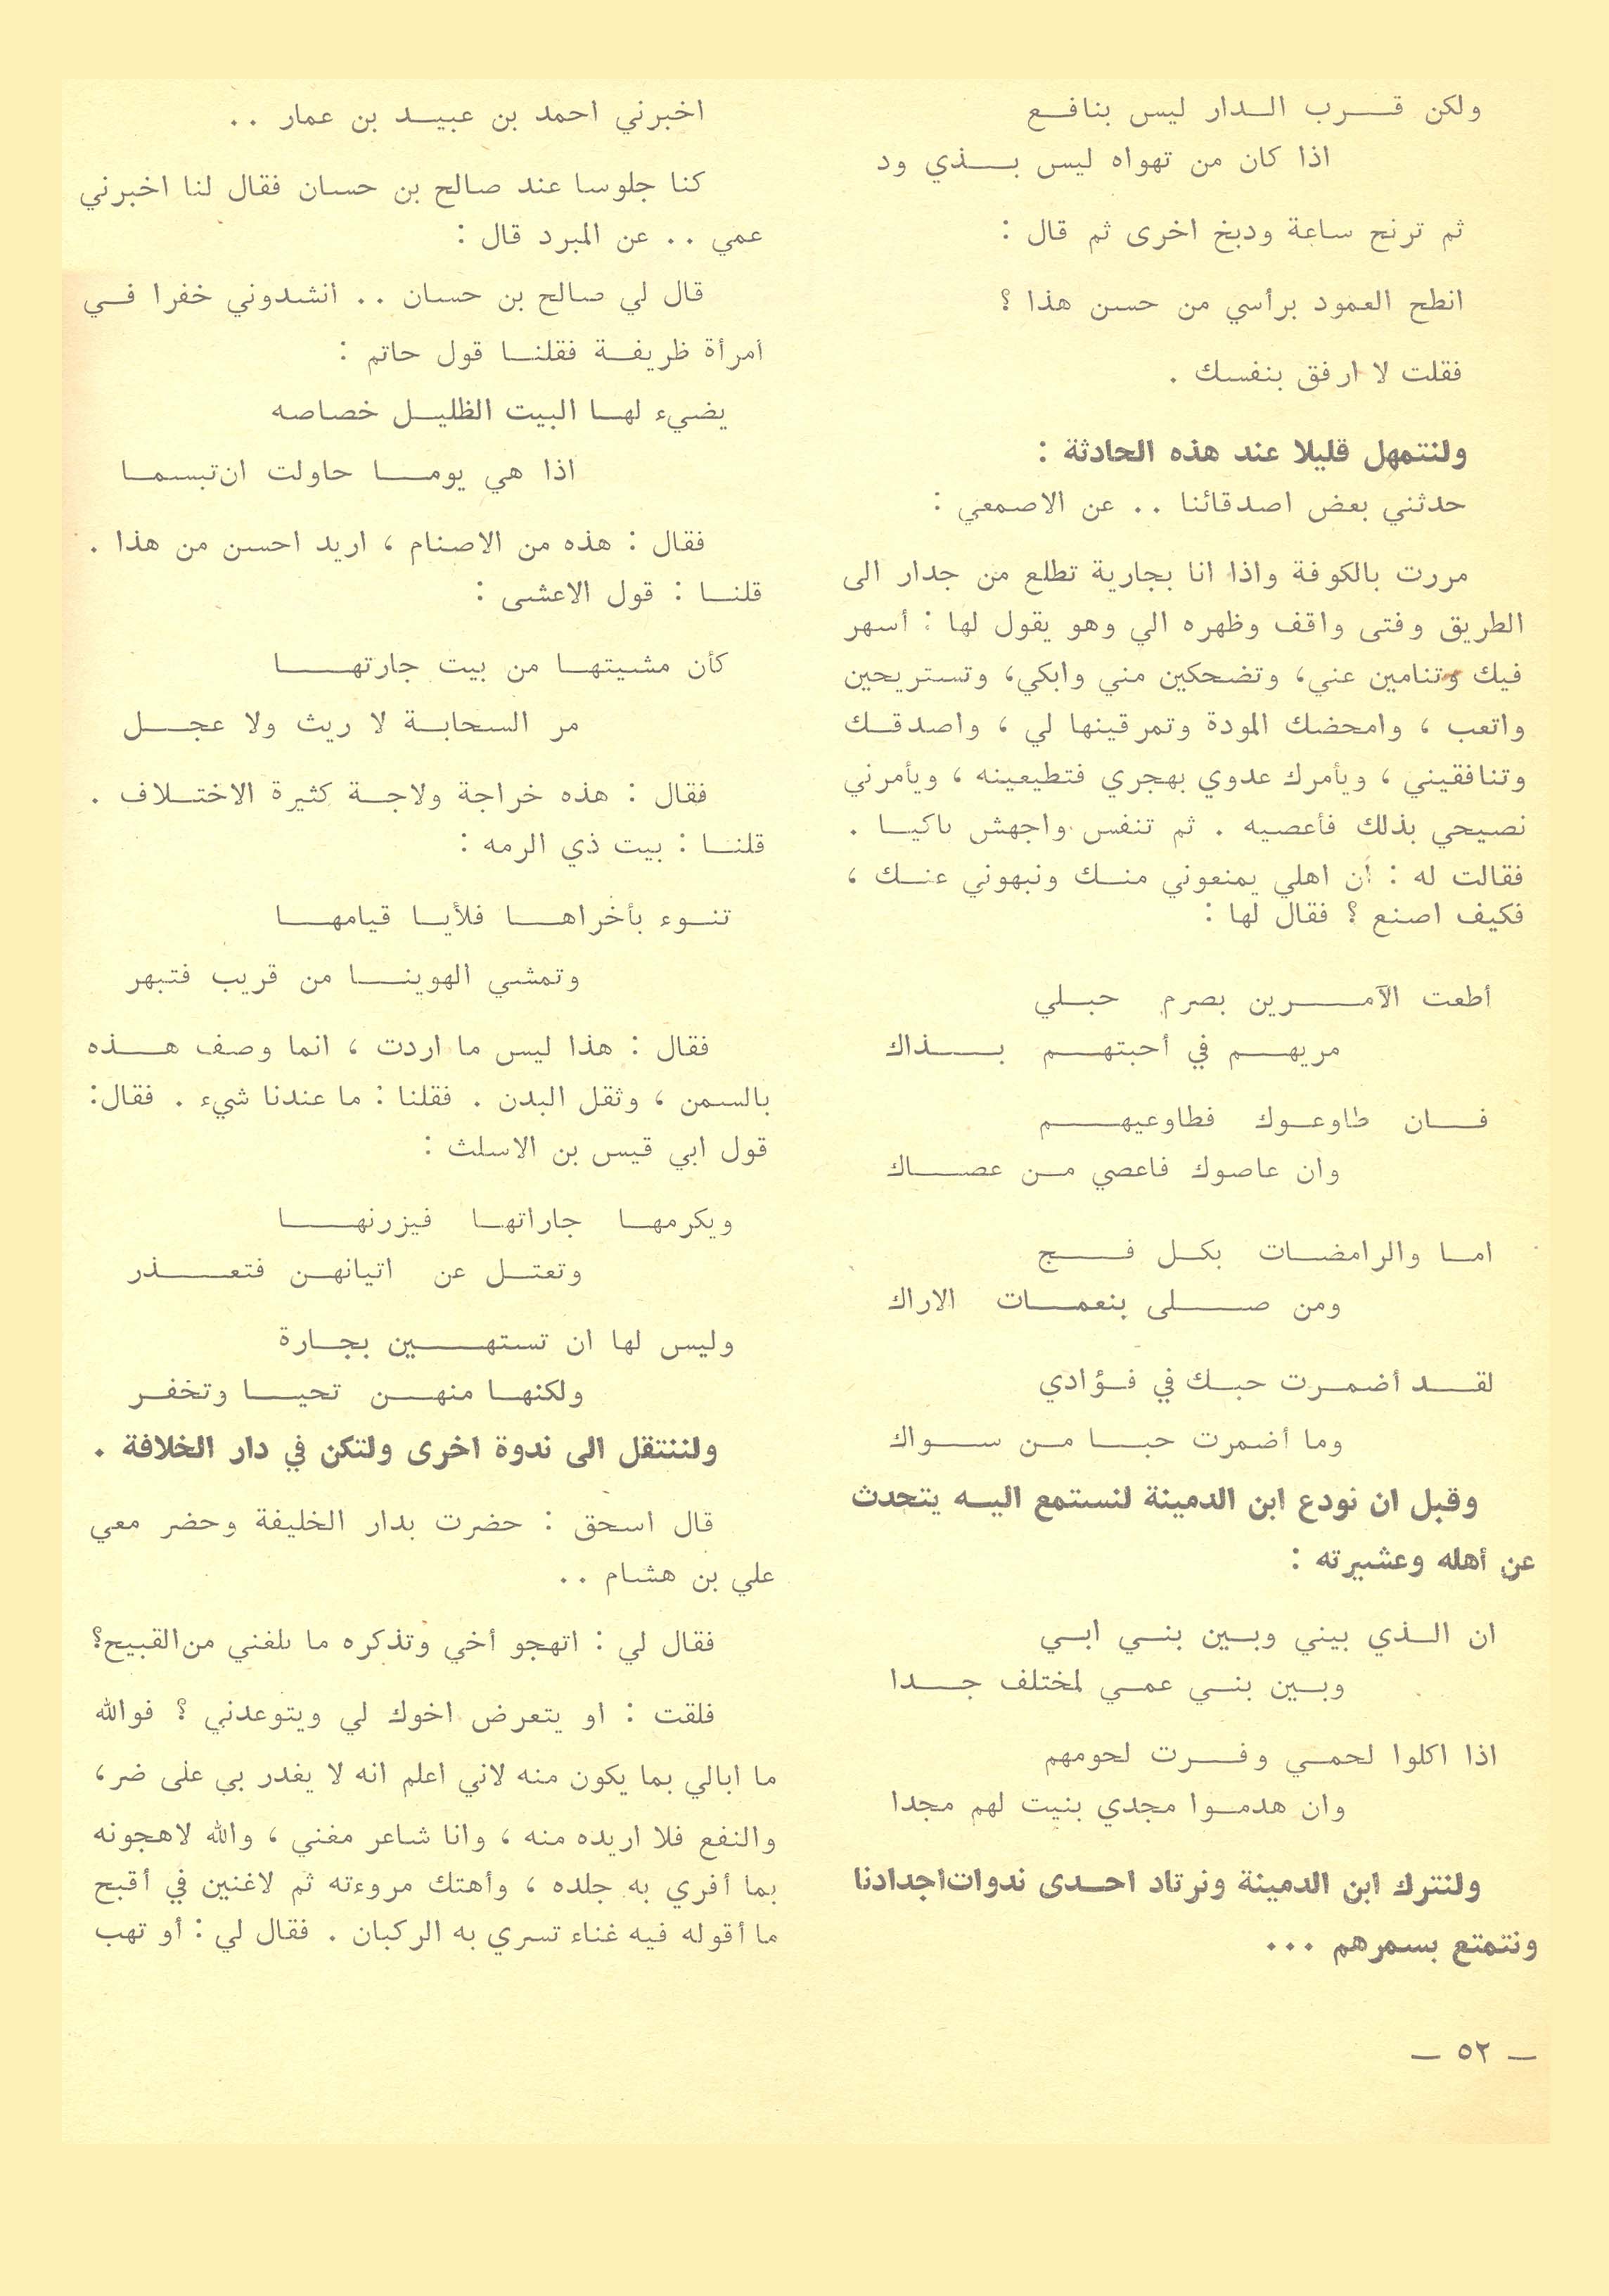 ولكن قرب الدار ليس بنافع
اذا كان من تهواه ليس بذي ود
ثم ترنح ساعة ودبخ اخرى ثم قال :
انطح العمود برأسي من حسن هذا ؟
فقلت لا ارفق بنفسك .
ولنتمهل قليلا عند هذه الحادثة :
حدثني بعض اصدقائنا .. عن الاصمعي :
مررت بالكوفة واذا انا بجارية تطلع من جدار الى
الطريق وفتى واقف وظهره الي وهو يقول لها : أسهر
فيك وتنامين عني، وتضحكين مني وابكي، وتستريحين
واتعب ، وامحضك المودة وتمرقينها لي ، واصدقك
وتنافقيني ، ويأمرك عدوي بهجري فتطيعينه ، ويأمرني
نصيحي بذلك فأعصيه . ثم تنفس واجهش باكيا .
فقالت له : ان اهلي يمنعوني منك ونبهوني عنك ،
فكيف اصنع ؟ فقال لها :
أطعت الآمرين بصرم حبلي
مريهم في أحبتهم بذاك
فان طاوعوك فطاوعيهم
وان عاصوك فاعصي من عصاك
اما والرامضات بكل فج
ومن صلى بنعمات الاراك
لقد أضمرت حبك في فؤادي
وما أضمرت حبا من سواك
وقبل ان نودع ابن الدمينة لنستمع اليه يتحدث
عن أهله وعشيرته :
ان الذي بيني وبين بني ابي
وبين بني عمي لمختلف جدا
اذا اكلوا لحمي وفرت لحومهم
وان هدموا مجدي بنيت لهم مجدا
ولنترك ابن الدمينة ونرتاد احدى ندوات اجدادنا
ونتمتع بسمرهم ...
اخبرني احمد بن عبيد بن عمار ..
كنا جلوسا عند صالح بن حسان فقال لنا اخبرني
عمي .. عن المبرد قال :
قال لي صالح بن حسان .. انشدوني خفرا في
أمرأة ظريفة فقلنا قول حاتم :
يضيء لها البيت الظليل خصاصه
اذا هي يوما حاولت ان تبسما
فقال : هذه من الاصنام ، اريد احسن من هذا .
قلنا : قول الاعشى :
كأن مشيتها من بيت جارتها
مر السحابة لا ريث ولا عجل
فقال : هذه خراجة ولاجة كثيرة الاختلاف .
قلنا : بيت ذي الرمه :
تنوء بأخراها فلأيا قيامها
وتمشي الهوينا من قريب فتبهر
فقال : هذا ليس ما اردت ، انما وصف هذه
بالسمن ، وثقل البدن . فقلنا : ما عندنا شيء . فقال:
قول ابي قيس بن الاسلث :
ويكرمها جاراتها فيزرنها
وتعتل عن اتيانهن فتعذر
وليس لها ان تستهين بجارة
ولكنها منهن تحيا وتخفر
ولننتقل الى ندوة اخرى ولتكن في دار الخلافة .
قال اسحق : حضرت بدار الخليفة وحضر معي
علي بن هشام ..
فقال لي : اتهجو أخي وتذكره ما بلغني من القبيح؟
فلقت : او يتعرض اخوك لي ويتوعدني ؟ فوالله
ما ابالي بما يكون منه لاني اعلم انه لا يغدر بي على ضر،
والنفع فلا اريده منه ، وانا شاعر مغني ، والله لاهجونه
بما أفري به جلده ، وأهتك مروءته ثم لاغنين في أقبح
ما أقوله فيه غناء تسري به الركبان . فقال لي : أو تهب
— ٥٢ —